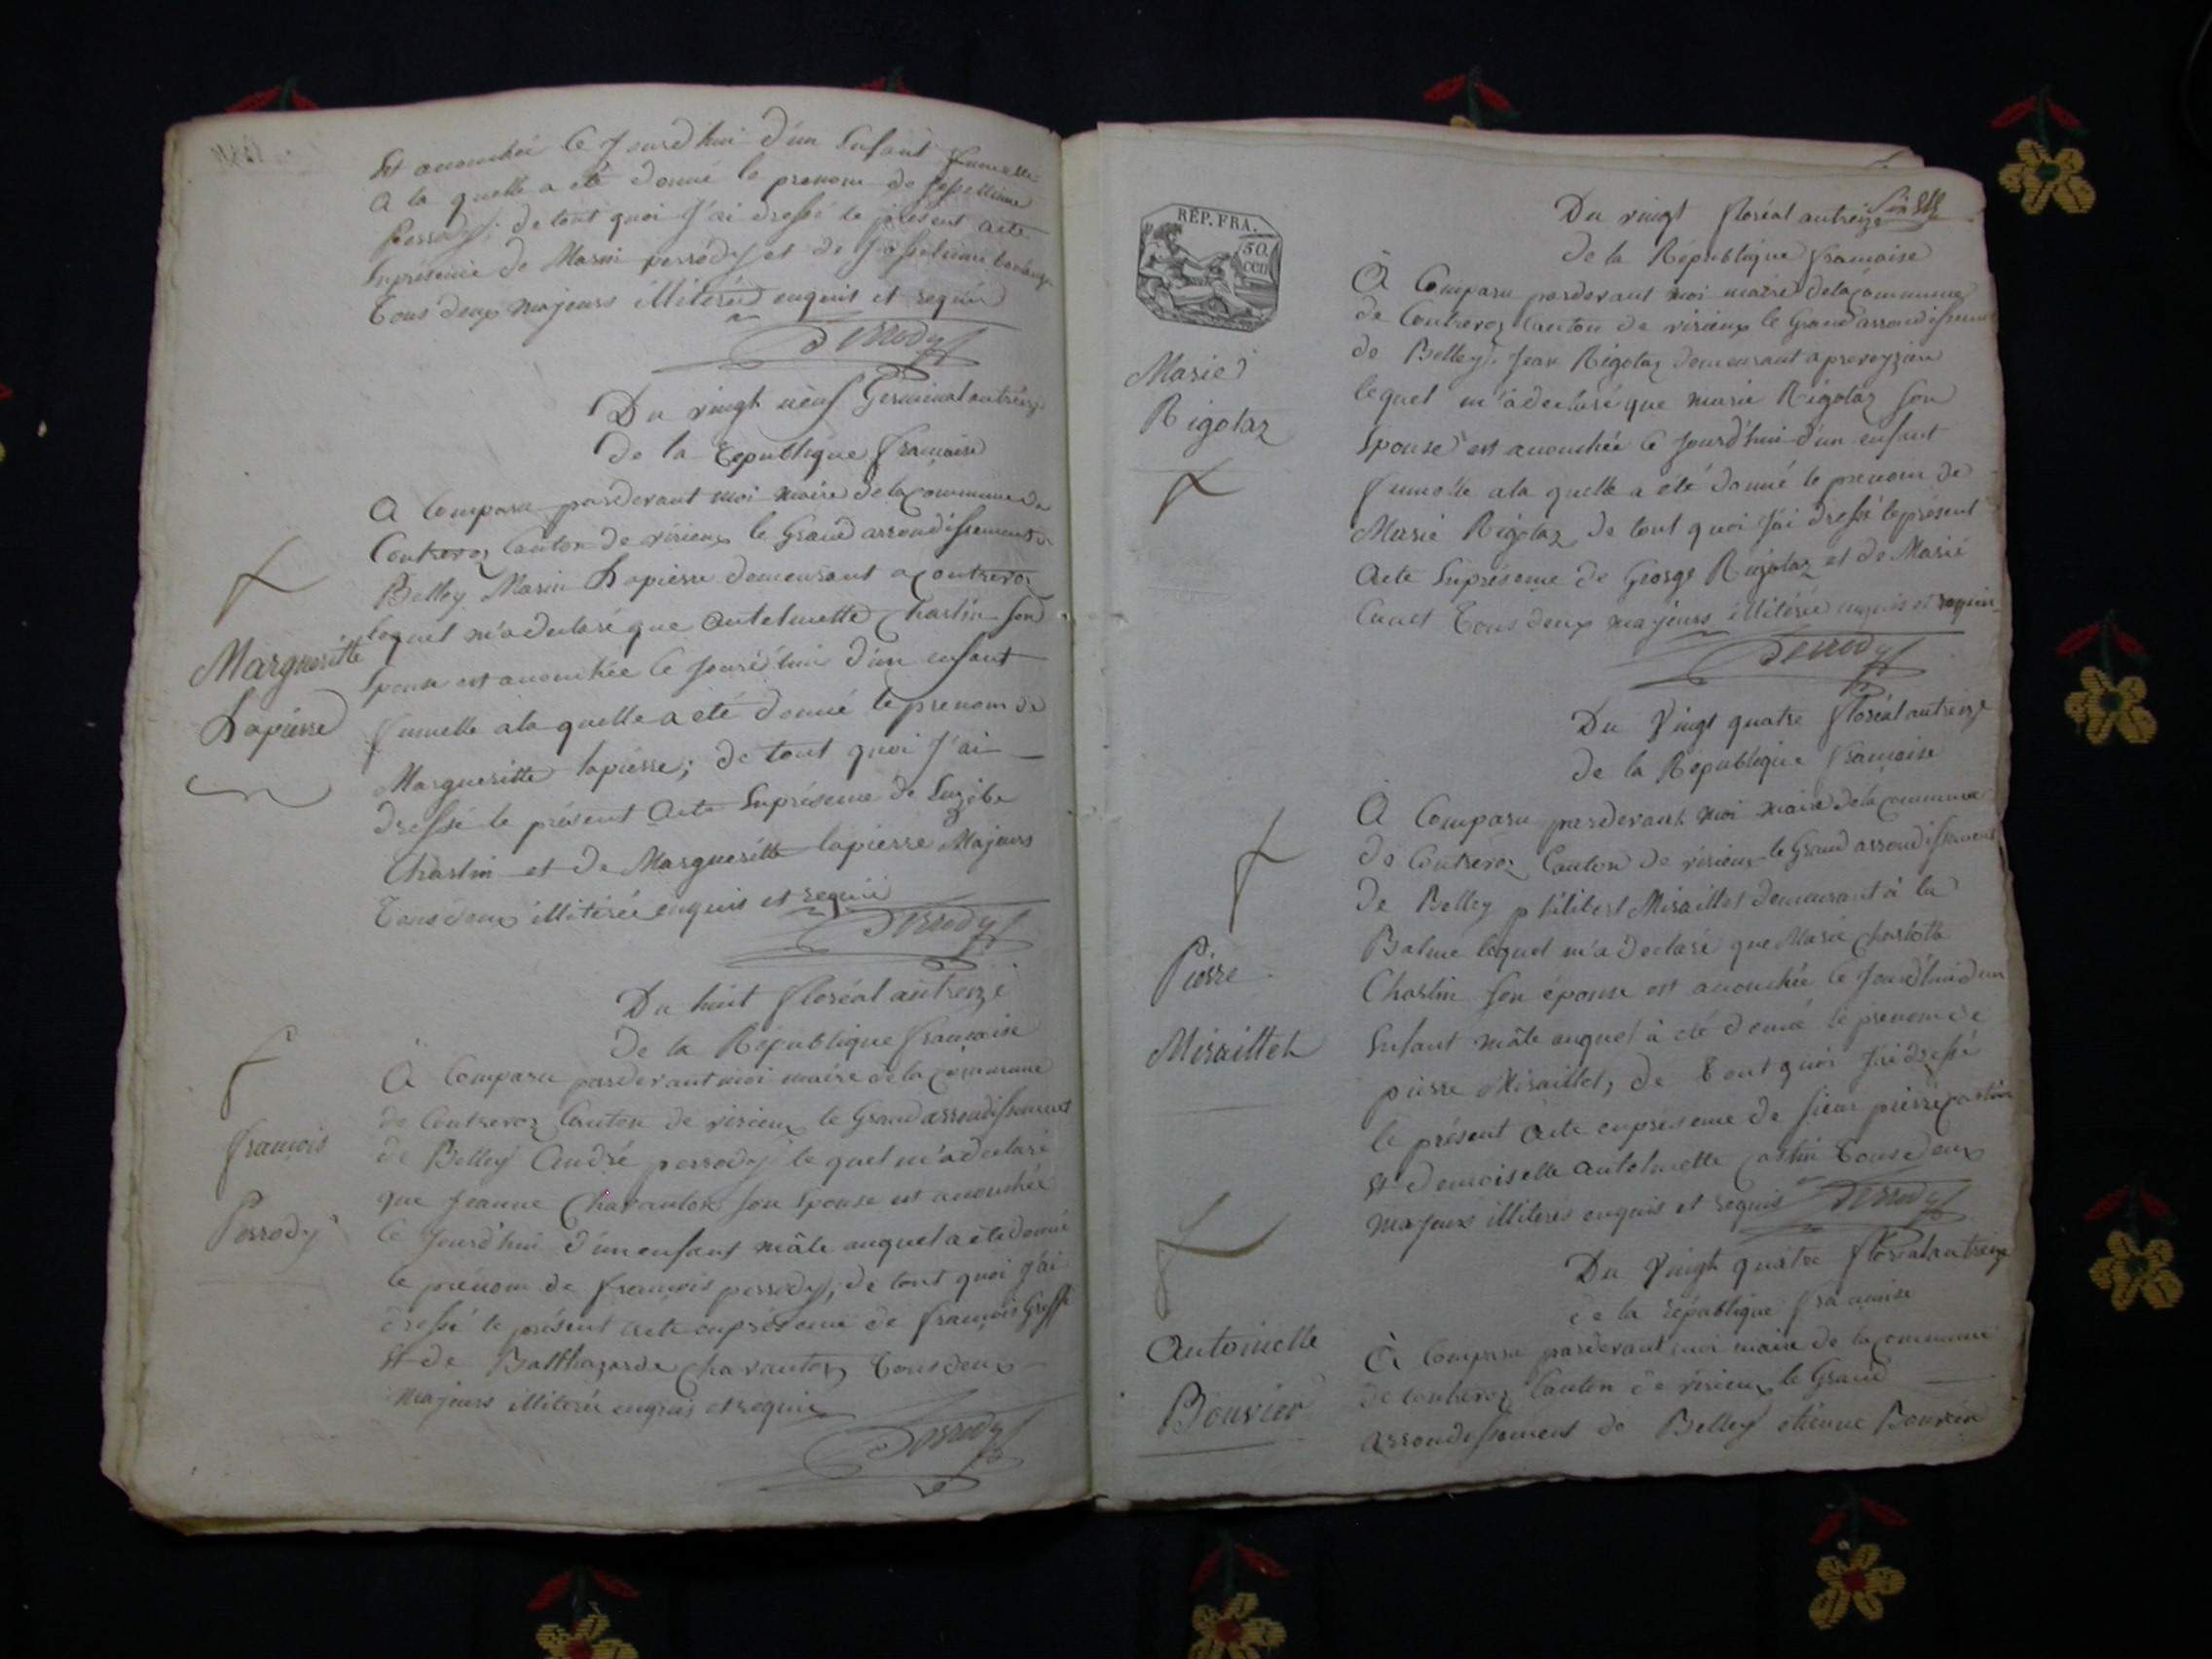 Est acouchée ce Jourd'hui d'un Enfant fumelle
A la quelle a été donné le prenom de
Perrody; de tout quoi J'ai dressé le présent acte
Enprésence de Marin perrody et de
Tous deux majeurs illiterée enquis et requis
Perrody
Du vingt neuf Germinal antreize
De la République francaise
A Comparu pardevant moi maire de la commune de
Contrevoz Canton de virieux le Grand arrondissement de
Belley Marin Lapierre demeurant a Contrevoz
lequel m'a declaré que Antelmette Charlin son
Epouse est acouchée ce Jourd'hui d'un enfant
fumelle a la quelle a été donné le prenom de
Margueritte lapierre; de tout quoi J'ai
dressé le présent Acte Enprésence de Euzèbe
Charlin et de Margueritte lapierre Majeurs
Tous deux illiterée enquis et requis
Perrody
Margueritte
Lapierre
Du huit floréal antreize
De la République francaise
A Comparu pardevant moi maire de la commune
de Contrevoz Canton de virieux le Grand arrondissement
de Belley André perrody le quel m'a declaré
que Jeanne Charanton son Epouse est acouchée
Ce Jourd'hui d'un enfant mâle auquel a été donné
le prénom de francois perrody; de tout quoi J'ai
dressé le présent acte enprésence de francois
Et de Balthazarde Charanton Tous deux
majeurs illiterée enquis et requis
Perrody
francois
Perrody
RÉP. FRA.
50
cen
Du vingt floréal antreize
de la République francaise
A Comparu pardevant moi maire de la commune
de Contrevoz Canton de virieux le Grand arrondissement
de Belley, Jean Rigolaz demeurant a
lequel m'a declaré que marie Rigolaz son
Epouse est acouchée ce Jourd'hui d'un enfant
fumelle a la quelle a été donné le prenom de
Marie Rigolaz de tout quoi J'ai dressé le présent
Acte Enprésence de George Rigolaz et de Marie
Tous deux majeurs illiterée enquis et requis
Perrody
Marie
Rigolaz
Du Vingt quatre floréal antreize
de la République francaise
A Comparu pardevant moi maire de la commune
de Contrevoz Canton de virieux le Grand arrondissement
de Belley philibert Miraillet demeurant à la
Balme lequel m'a declaré que Marie Charlotte
Charlin son épouse est acouchée ce Jourd'hui d'un
Enfant mâle auquel à été donné le prenom de
pierre Miraillet, de Tout quoi J'ai dressé
le présent Acte enprésence de sieur pierre
Et demoiselle Antelmette Tous deux
majeurs illiterés enquis et requis Perrody
Pierre
Miraillet
Du Vingt quatre floréal antreize
de la republique francaise
A Comparu pardevant moi maire de la commune
de contrevoz Canton de virieux le Grand
arrondissement de Belley etienne Bouvier
Antoinette
Bouvier